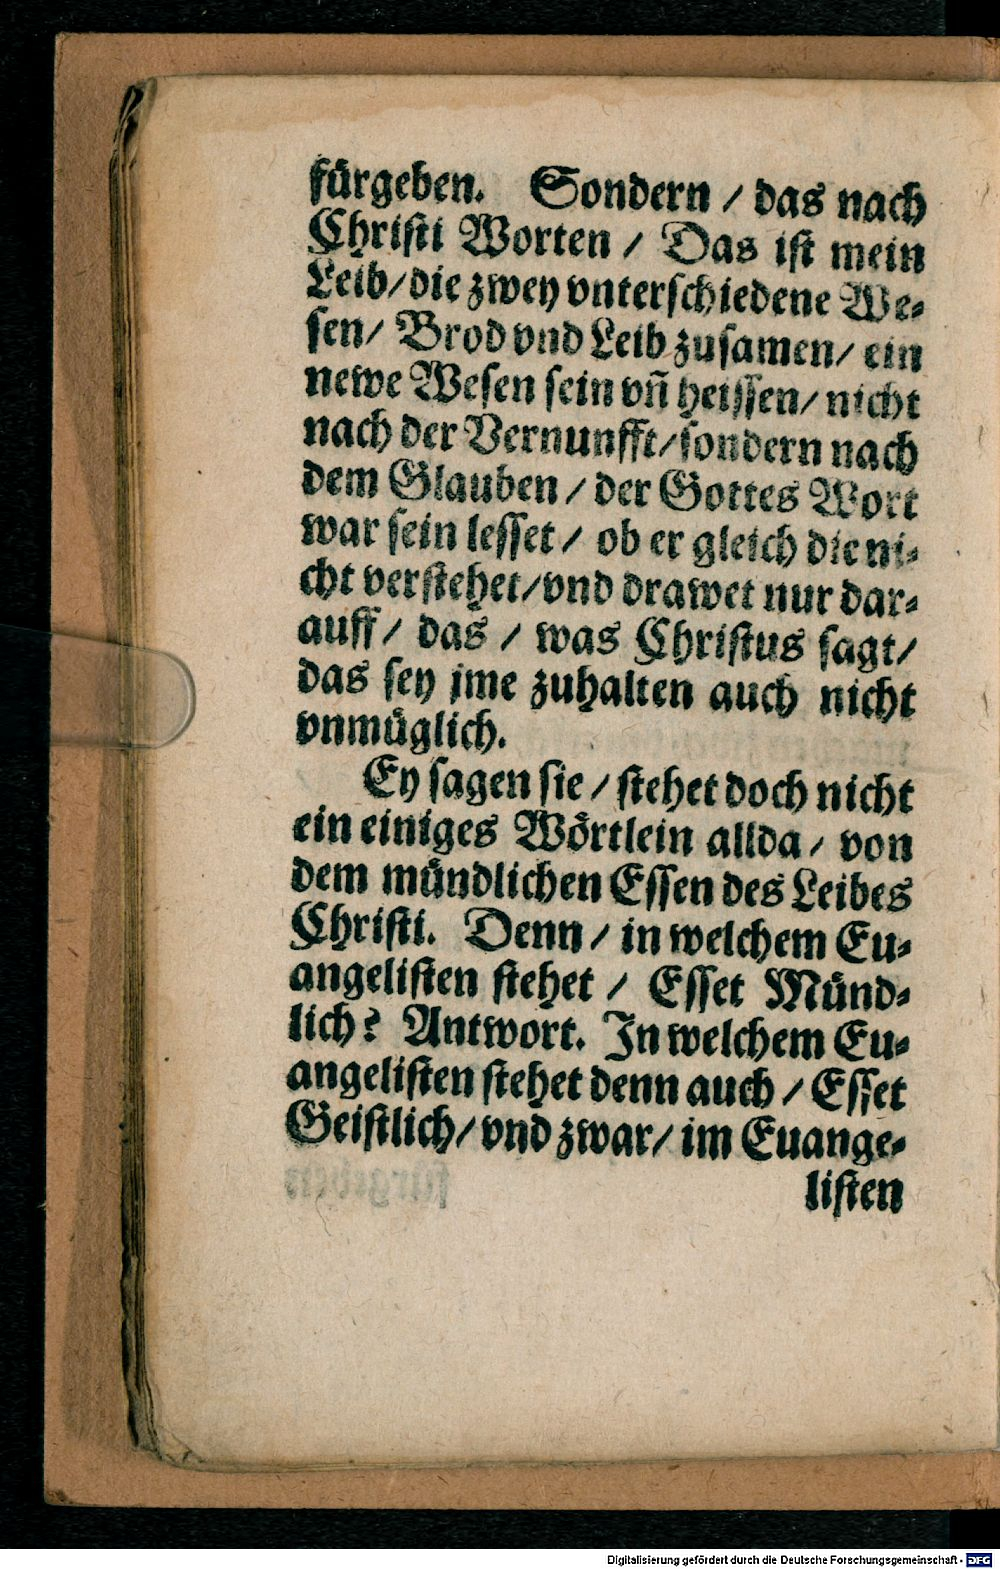 fürgeben. Sondern / das nach
Christi Worten / Das ist mein
Leib/die zwey vnterschiedene We-
sen/ Brod vnd Leib zusamen/ ein
newe Wesen sein vn̄ heissen/ nicht
nach der Vernunfft/sondern nach
dem Glauben / der Gottes Wort
war sein lesset / ob er gleich die ni-
cht verstehet/vnd drawet nur dar-
auff/ das / was Christus sagt/
das sey jme zuhalten auch nicht
vnmüglich.
Ey sagen sie / stehet doch nicht
ein einiges Wörtlein allda / von
dem mündlichen Essen des Leibes
Christi. Denn / in welchem Eu-
angelisten stehet / Esset Münd-
lich? Antwort. In welchem Eu-
angelisten stehet denn auch / Esset
Geistlich/ vnd zwar/ im Euange-
listen
Digitalisierung gefördert durch die Deutsche Forschungsgemeinschaft - DFG